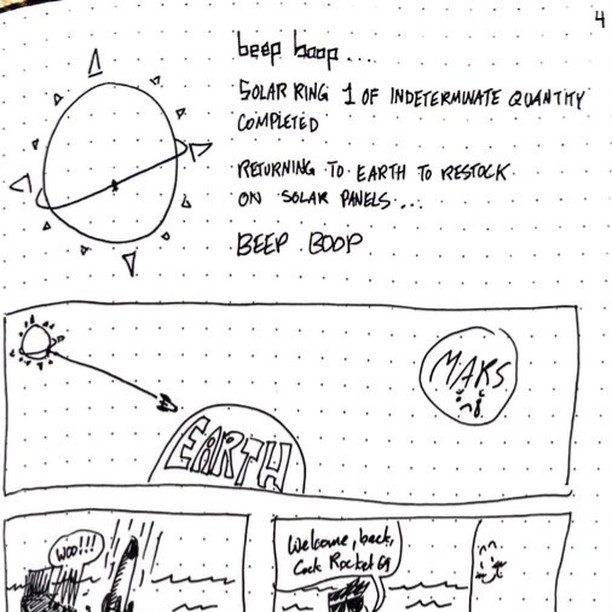 4
beep boop....
SOLAR RING 1 OF INDETERMINATE QUANTITY
COMPLETED
RETURNING TO EARTH TO RESTOCK
ON SOLAR PANELS...
BEEP BOOP
MARS
EARTH
WOO!!!
Welcome, back,
Cock Rocket 69